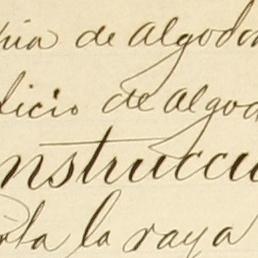 de algodon
ficio de algod
nstrucci
ta la raya